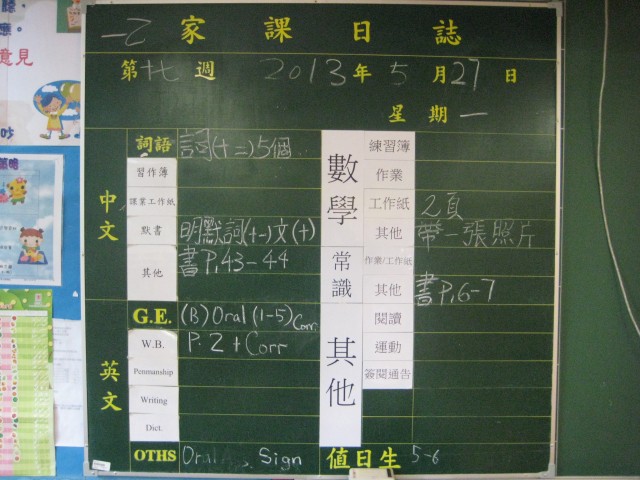 一乙 家課日誌
第十七週 2013年5月27日
星期一
中文
詞語 詞(十二)5個
習作簿
課業工作紙
默書 明默詞(十一)文(十)
其他 書P.43-44
英文
G.E. (B) Oral (1-5) Corr.
W.B. P. 2 + Corr
Penmanship
Writing
Dict.
OTHS Oral Sign
數學
練習簿
作業
工作紙 2頁
其他 帶一張照片
常識
作業/工作紙
其他 書P.6-7
其他
閱讀
運動
簽閱通告
值日生 5-6
意見